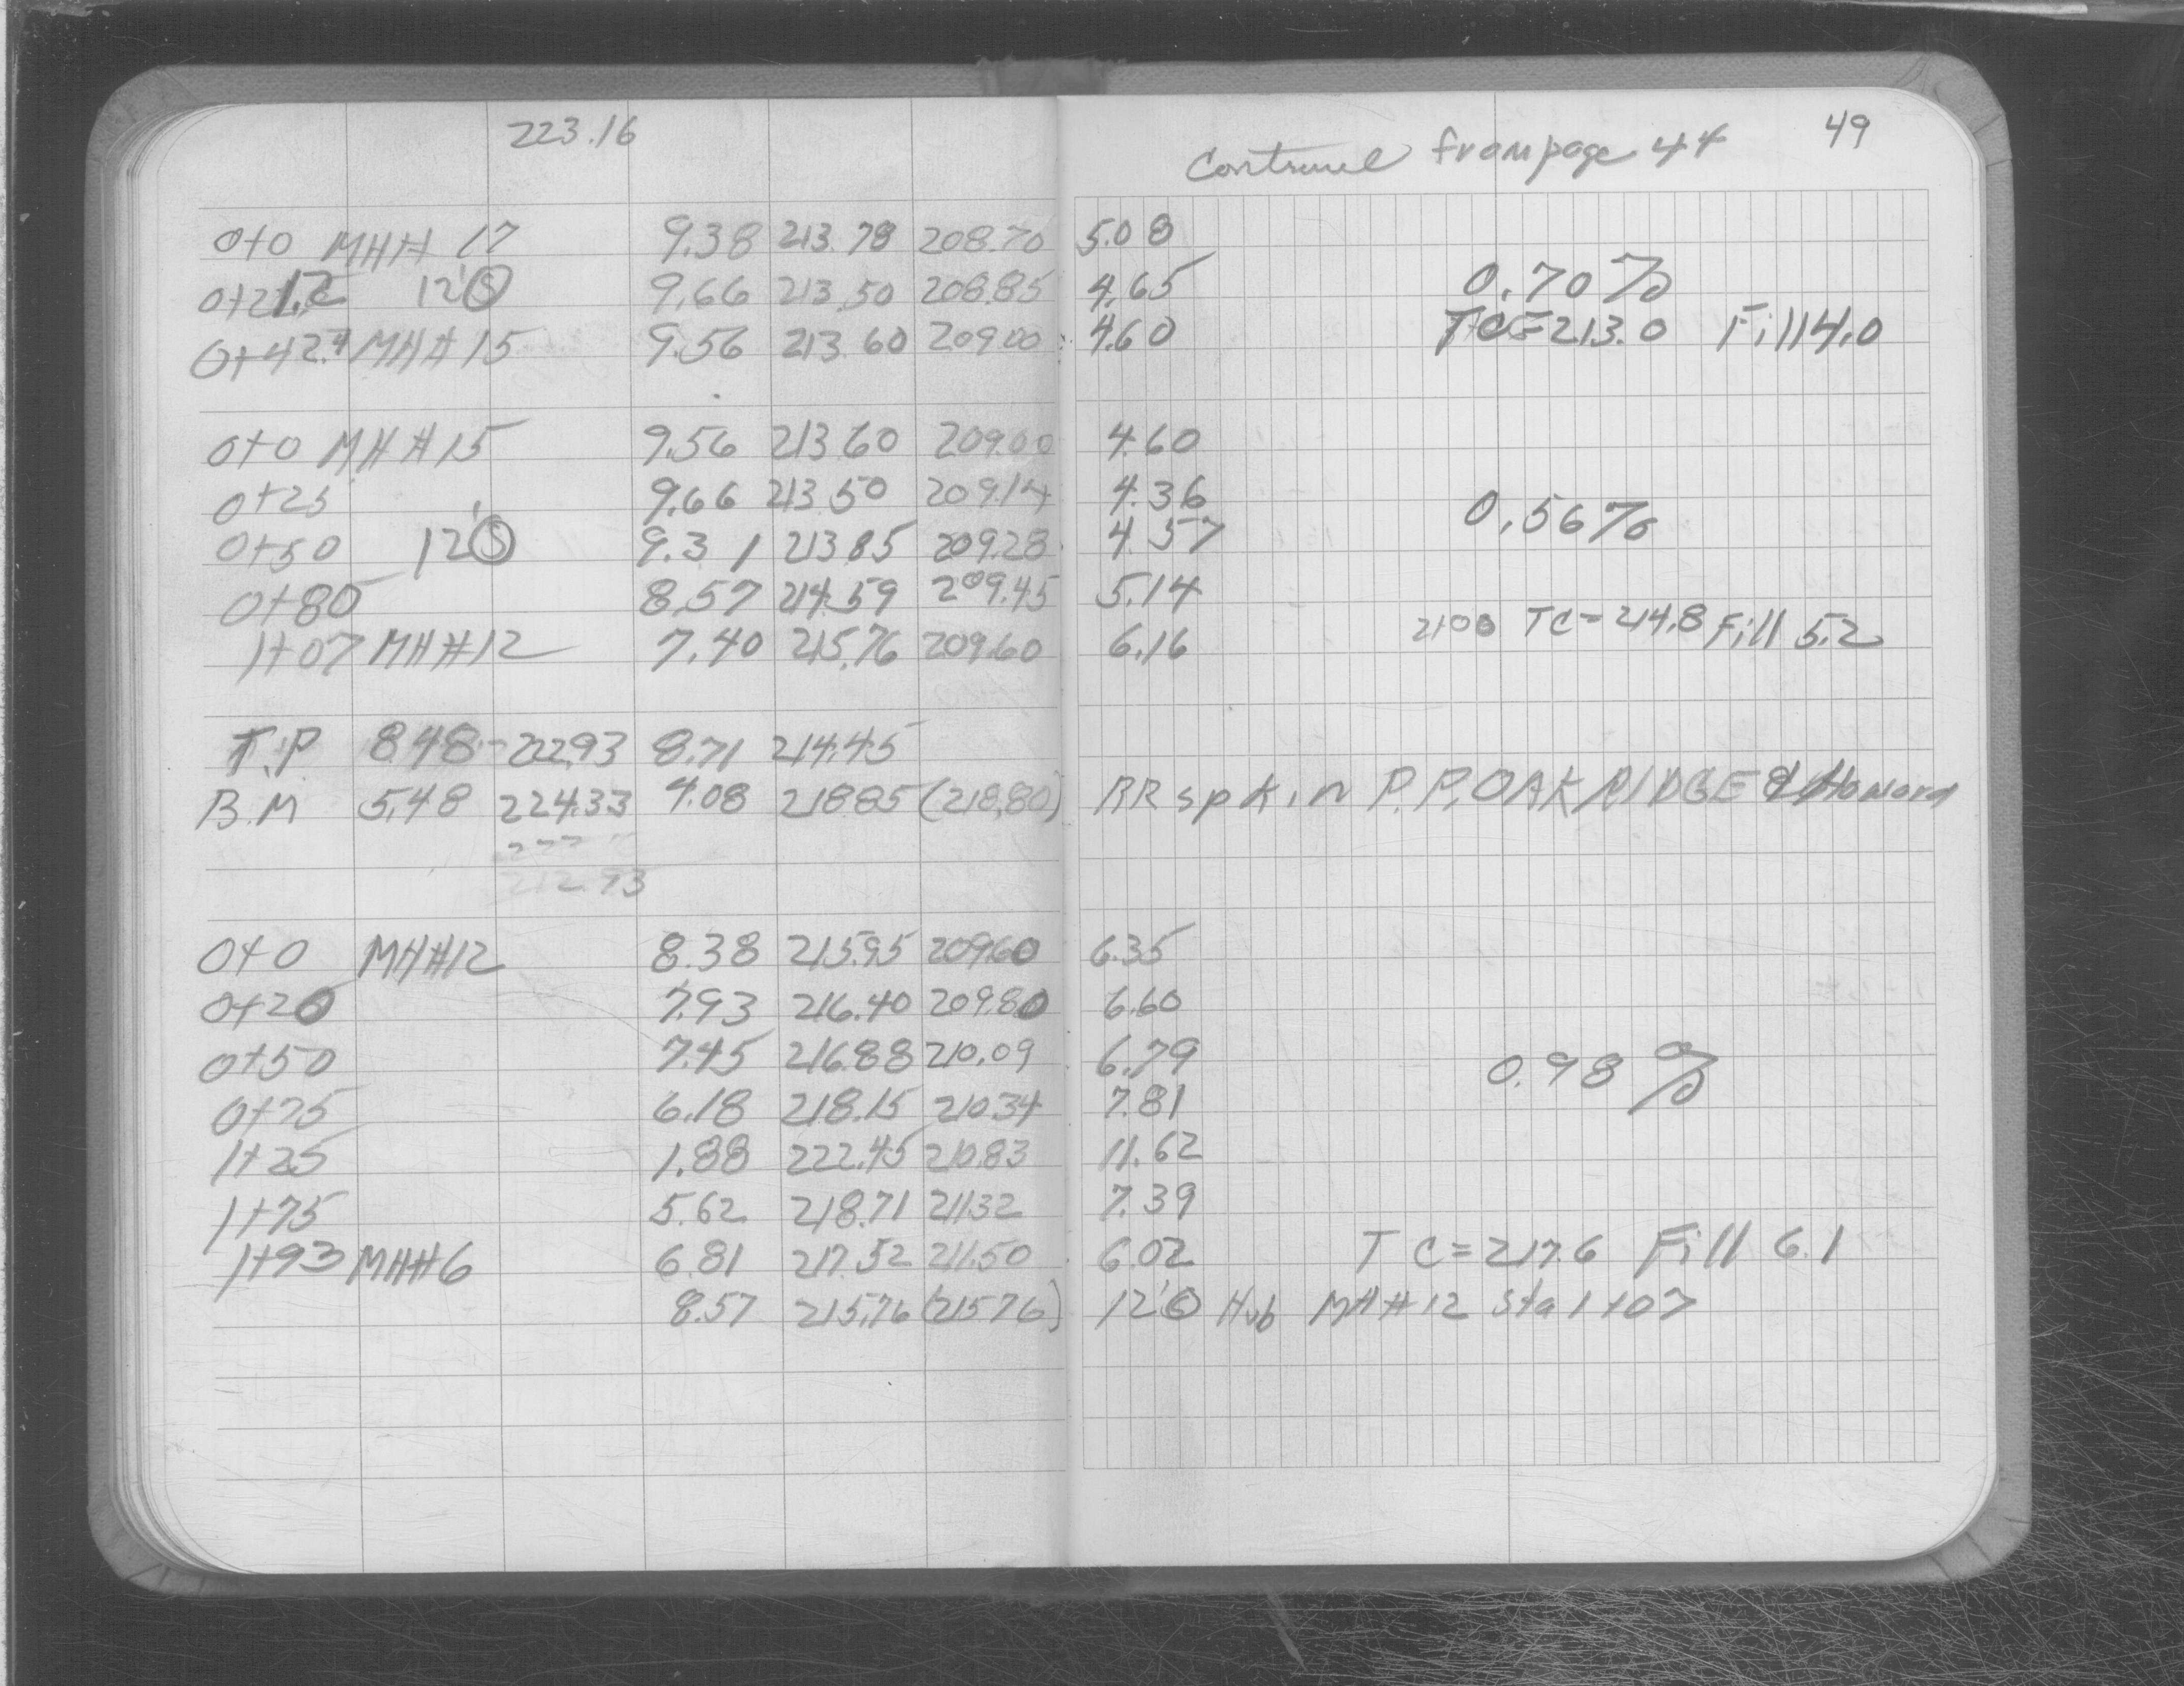 223.16
Continued from page 44 49
0+0 MH# 17 9.38 213.78 208.70 5.08
0+21.2 12' Ⓢ 9.66 213.50 208.85 4.65 0.70%
0+42.4 MH# 15 9.56 213.60 209.00 4.60 TC=213.0 Fill 4.0
0+0 MH# 15 9.56 213.60 209.00 4.60
0+25 9.66 213.50 209.14 4.36
0+50 12' Ⓢ 9.31 213.85 209.28 4.57 0.56%
0+80 8.57 214.59 209.45 5.14
1+07 MH#12 7.40 215.76 209.60 6.16 TC=214.8 Fill 5.2
T.P 8.48 222.93 8.71 214.45
B.M 5.48 224.33 4.08 218.85 (218.80) RR spk in P.P. OAK RIDGE & Howard
212.93
0+0 MH#12 8.38 215.95 209.60 6.35
0+20 7.93 216.40 209.80 6.60
0+50 7.45 216.88 210.09 6.79 0.98%
0+75 6.18 218.15 210.34 7.81
1+25 1.88 222.45 210.83 11.62
1+75 5.62 218.71 211.32 7.39
1+93 MH#6 6.81 217.52 211.50 6.02 TC=217.6 Fill 6.1
8.57 215.76 (215.76) 12' Ⓢ Hub MH#12 Sta 1+07